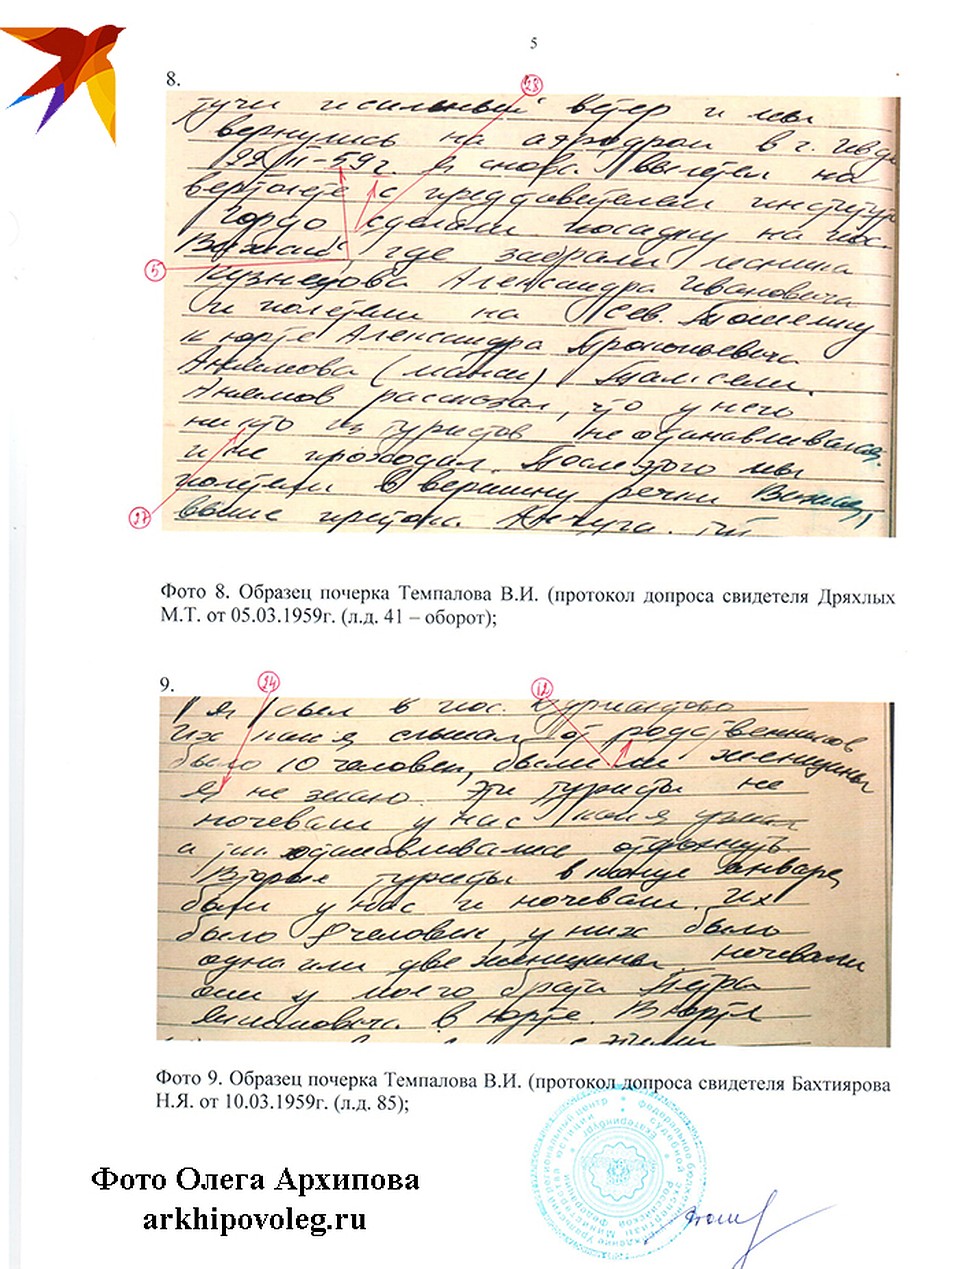 5
8.
28
тучи и сильный ветер и мы
вернулись на аэродром в г. Ивде
-59г. я снова вылетел на
вертолете с представителем института
Гордо сделали посадку на пос.
Вижай, где забрали лесника
5
Кузнецова Александра Ивановича
и полетели на Сев. Тошемку
к юрте Александра Прокопьевича
Анямова (манси) Там сели.
Анямов рассказал, что у него
никто из туристов не останавливался
и не проходил. После этого мы
полетели в вершину речки Вижай,
27
выше притока Анчуга.
Фото 8. Образец почерка Темпалова В.И. (протокол допроса свидетеля Дряхлых
М.Т. от 05.03.1959г. (л.д. 41 – оборот);
9.
24
12
я был в пос.
их как я слышал от родственников
было 10 человек, были ли женщины
я не знаю. Эти туристы не
ночевали у нас как я узнал
а останавливались отдохнуть.
Вторые туристы в конце января
были у нас и ночевали. Их
было человек, у них было
одна или две женщины ночевали
они у моего брата Петра
в юрте. В юрте
Фото 9. Образец почерка Темпалова В.И. (протокол допроса свидетеля Бахтиярова
Н.Я. от 10.03.1959г. (л.д. 85);
Фото Олега Архипова
arkhipovoleg.ru